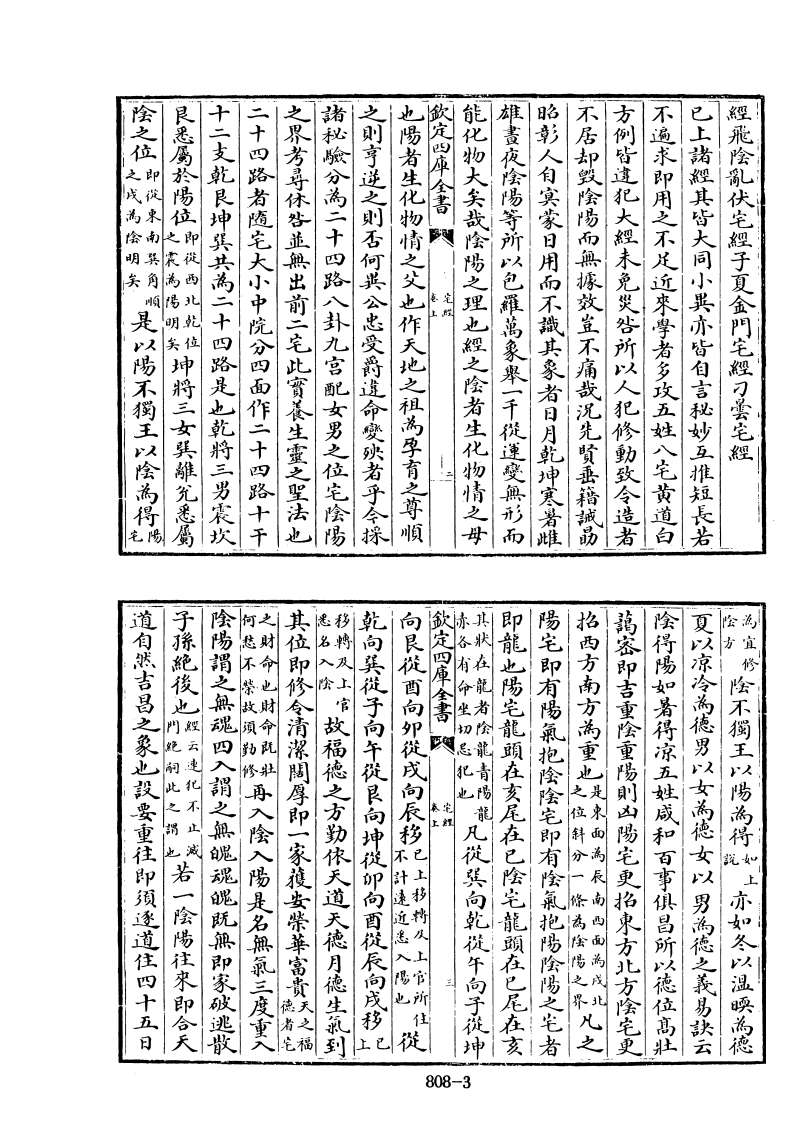 經飛陰亂伏宅經子夏金門宅經刁曇宅經
已上諸經其皆大同小異亦皆自言秘妙互推短長若
不遍求即用之不足近來學者多攻五姓八宅黄道白
方例皆違犯大經未免災咎所以人犯修動致令造者
不居却毁陰陽而無據效豈不痛哉況先賢垂籍誡勗
昭彰人自㝠蒙日用而不識其象者日月乾坤寒暑雌
雄晝夜陰陽等所以包羅萬象舉一千從運變無形而
能化物大矣哉陰陽之理也經之陰者生化物情之母
欽定四庫全書
宅經
卷上
二
也陽者生化物情之父也作天地之祖為孕育之尊順
之則亨逆之則否何異公忠受爵違命變殃者乎今採
諸秘驗分為二十四路八卦九宫配女男之位宅陰陽
之界考尋休咎並無出前二宅此實養生靈之聖法也
二十四路者随宅大小中院分四面作二十四路十干
十二支乾艮坤巽共為二十四路是也乾將三男震坎
艮悉屬於陽位即從西北乾位之震為陽明矣坤將三女巽離兊悉屬
陰之位即從東南巽角順之戌為陰明矣是以陽不獨王以陰為得陽宅
為宜修陰方陰不獨王以陽為得如上説亦如冬以温暖為德
夏以凉冷為德男以女為德女以男為德之義易訣云
陰得陽如暑得凉五姓咸和百事俱昌所以德位髙壯
藹宻即吉重陰重陽則凶陽宅更招東方北方陰宅更
招西方南方為重也是東面為辰南西面為戌北之位斜分一條為陰陽之界凡之
陽宅即有陽氣抱陰陰宅即有陰氣抱陽陰陽之宅者
即龍也陽宅龍頭在亥尾在巳陰宅龍頭在巳尾在亥
其狀在龍者陰龍青陽龍赤各有命坐切忌犯也凡從巽向乾從午向子從坤
欽定四庫全書
宅經
卷上
三
向艮從酉向卯從戌向辰移已上移轉及上官所住不計遠近悉入陽也從
乾向巽從子向午從艮向坤從卯向酉從辰向戌移已上
移轉及上官悉名入陰故福德之方勤依天道天德月德生氣到
其位即修令清潔闊厚即一家獲安榮華富貴天之福德者宅
之財命也財命既壯何愁不榮故須勤修再入陰入陽是名無氣三度重入
陰陽謂之無魂四入謂之無魄魂魄既無即家破逃散
子孫絶後也經云連犯不止滅門絶嗣此之謂也若一陰陽往來即合天
道自然吉昌之象也設要重往即須逐道住四十五日
808-3